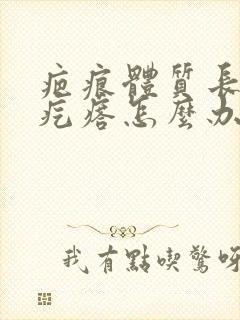 疤痕體質長
疙瘩怎麼办
我有點喫驚呀